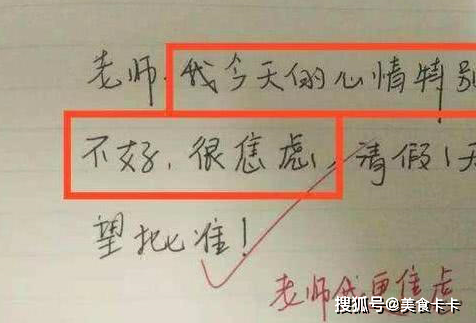 老师，我今天的心情特别
不好，很焦虑，请假1天
望批准！
老师我更焦虑
搜狐号@美食卡卡